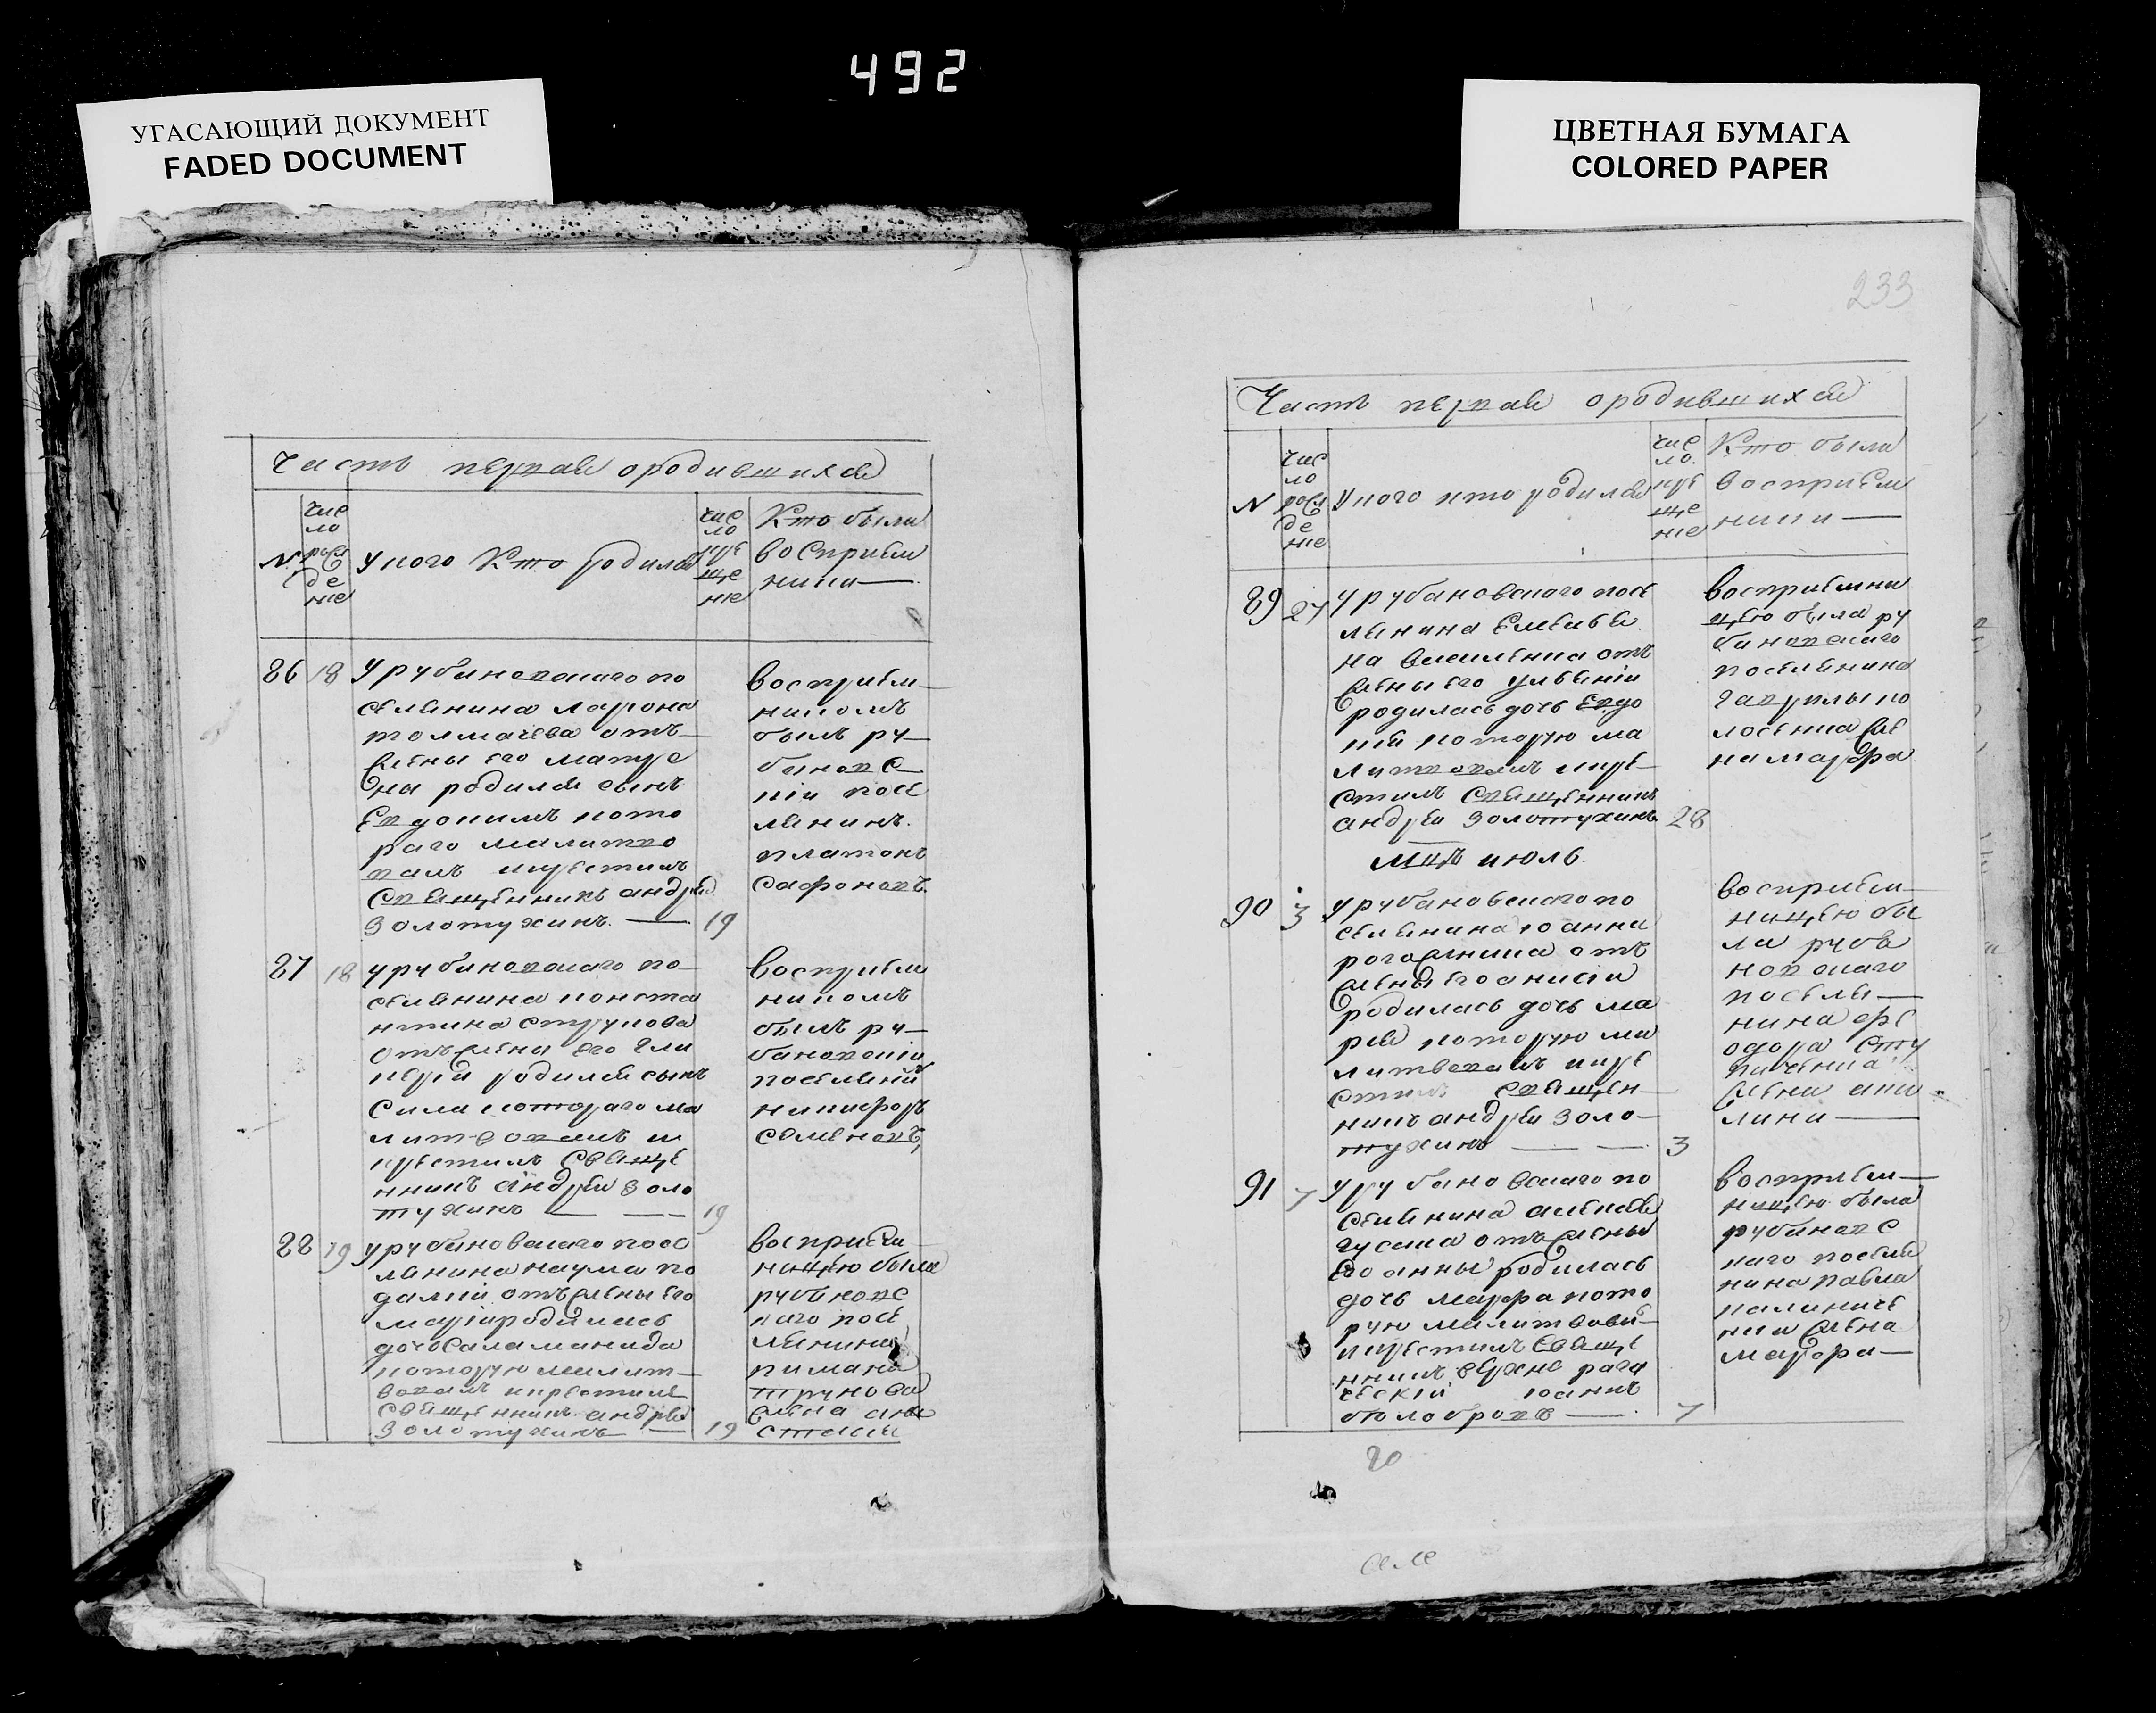 492
УГАСАЮЩИЙ ДОКУМЕНТ
FADED DOCUMENT
ЦВЕТНАЯ БУМАГА
COLORED PAPER
Часть первая ородившихся
N
чис
ло
рож
де
ние
У кого Кто родился
чис
ло
кре
ще
ние
Кто были
восприем
ники
86 18
У рубановскаго по
селянина
толмачева отъ
жены его матре
ны родился сынъ
Евдокимъ кото
раго малитво
валъ икрестилъ
Священникъ андрей
Золотухинъ 19
восприем
никомъ
былъ ру
бановс
кій посе
лянинъ
платонъ
Сафоновъ
87 18
у рубановскаго по
селянина конста
нтина струкова
отъ жена его гли
керіи родился сынъ
Сила котораго ма
литвовалъ и
крестилъ Свяще
нникъ андрей Золо
тухинъ 19
восприем
никомъ
былъ ру
бановскій
поселянин
никифоръ
Семеновъ
88 19
у рубановскаго посе
лянина наума
отъ жены его
родилась
дочь саламанида
которую малит
вовалъ икрестилъ
Священникъ андрей
Золотухинъ 19
восприем
ницею была
рубановс
каго посе
лянина
романа
трунова
жена ана
стасия
233
Часть первая ородившихся
N
чис
ло
рож
де
ние
У кого кто родился
чис
ло
кре
ще
ние
Кто были
восприем
ники
89 27
У рубановскаго посе
лянина Емелья
на отъ
жены его
родилась дочь Евдо
кія которую ма
литвовалъ икре
стилъ Священникъ
андрей Золотухинъ 28
восприемни
цею была ру
бановскаго
поселянина
гаврилы по
же
на мавра
Мцъ июль
90 3
У рубановскаго по
селянина иоанна
отъ
жены его анисіи
родилась дочь ма
рия которую ма
литвовалъ икре
стилъ Священ
никъ андрей Золо
тухинъ 3
восприем
ницею бы
ла руба
новскаго
поселя
нина фе
одора
жена аки
лина
91 7
У рубановскаго по
селянина алексея
гусака отъ жены
его анны родилась
дочь мавра кото
рую малитвовал
икрестилъ Свяще
нникъ
иоаннъ
7
восприем
ницею была
рубановс
каго поселя
нина павла
калиниче
нки жена
мавра
20